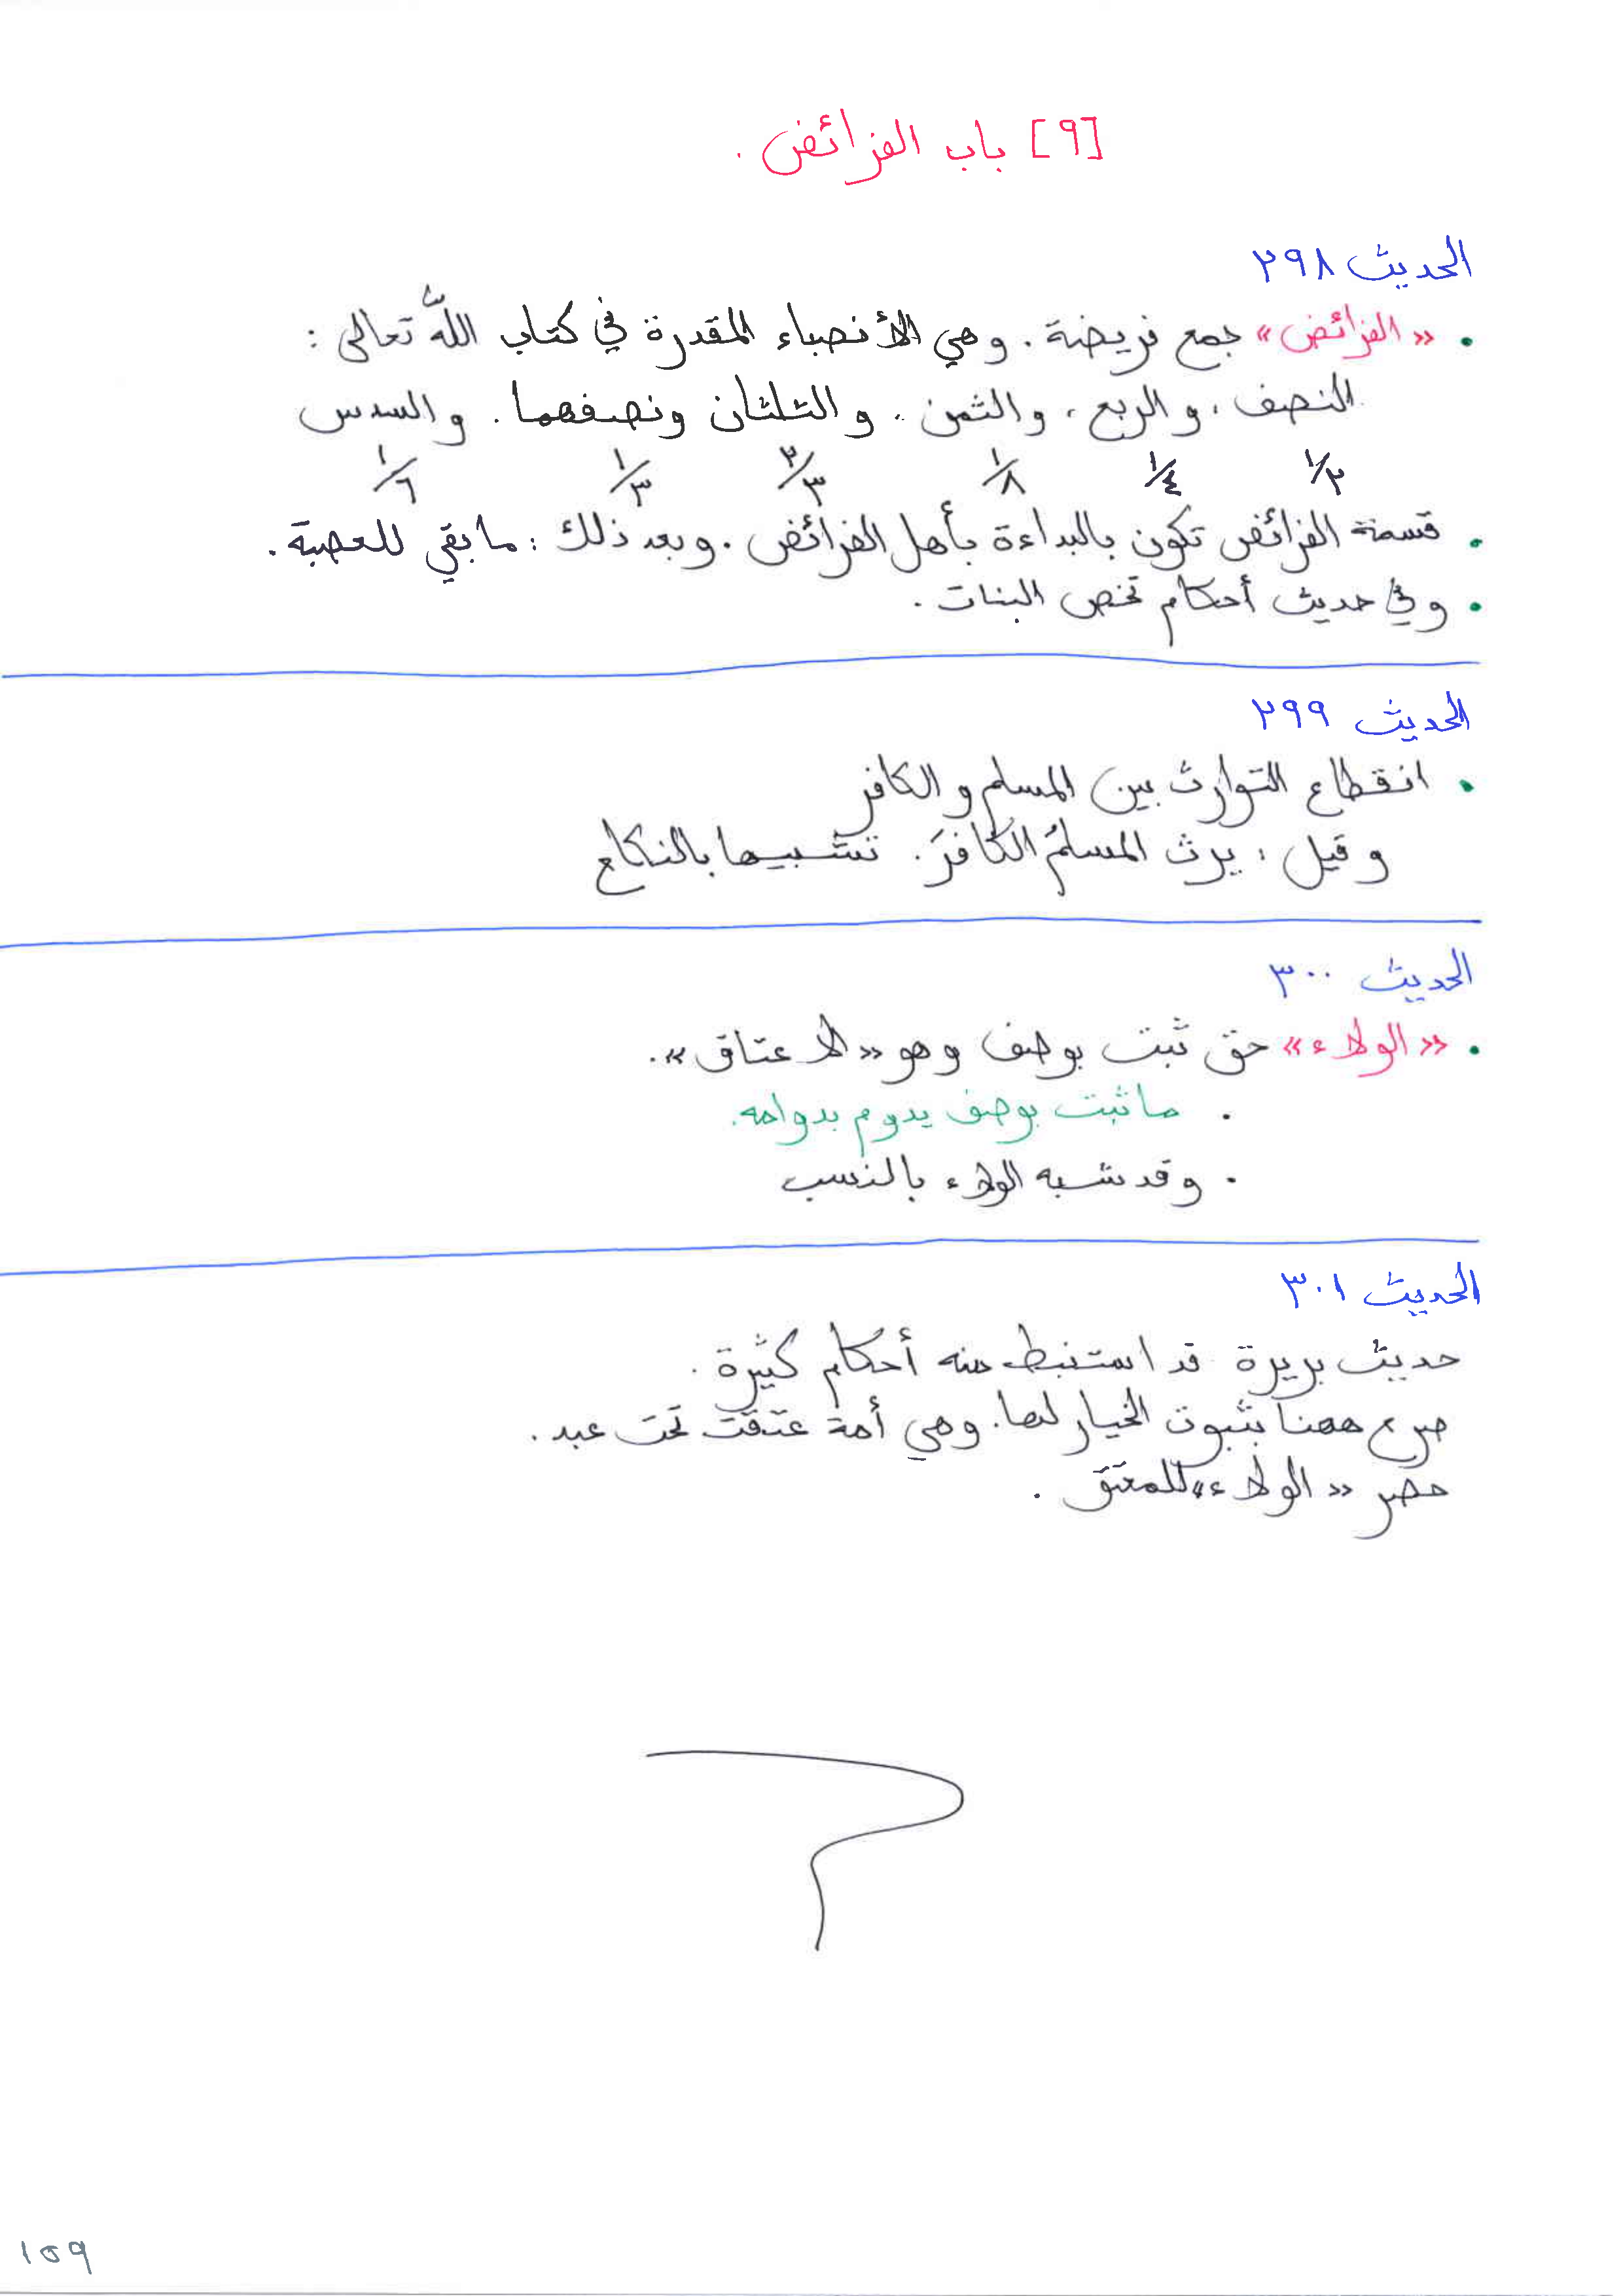 [٩] باب الفرائض .
الحديث ٢٩٨
• «الفرائض» جمع فريضة . وهي الأنصباء المقدرة في كتاب اللّه تعالى :
النصف ، والربع ، والثمن . والثلثان ونصفهما . والسدس
١/٢ ١/٤ ١/٨ ٢/٣ ١/٣ ١/٦
• قسمة الفرائض تكون بالبداءة بأهل الفرائض . وبعد ذلك : ما بقي للعصبة .
• وفي حديث أحكام تخص البنات .
الحديث ٢٩٩
• انقطاع التوارث بين المسلم والكافر
وقيل : يرث المسلمُ الكافرَ . تشبيها بالنكاح
الحديث ٣٠٠
• «الولاء» حق ثبت بوصف وهو «الاعتاق» .
. ما ثبت بوصف يدوم بدوامه .
. وقد شبه الولاء بالنسب
الحديث ٣٠١
حديث بريرة قد استنبط منه أحكام كثيرة .
صرح ههنا بثبوت الخيار لها . وهي أمة عتقت تحت عبد .
حصر «الولاء» للمعتق .
١٥٩